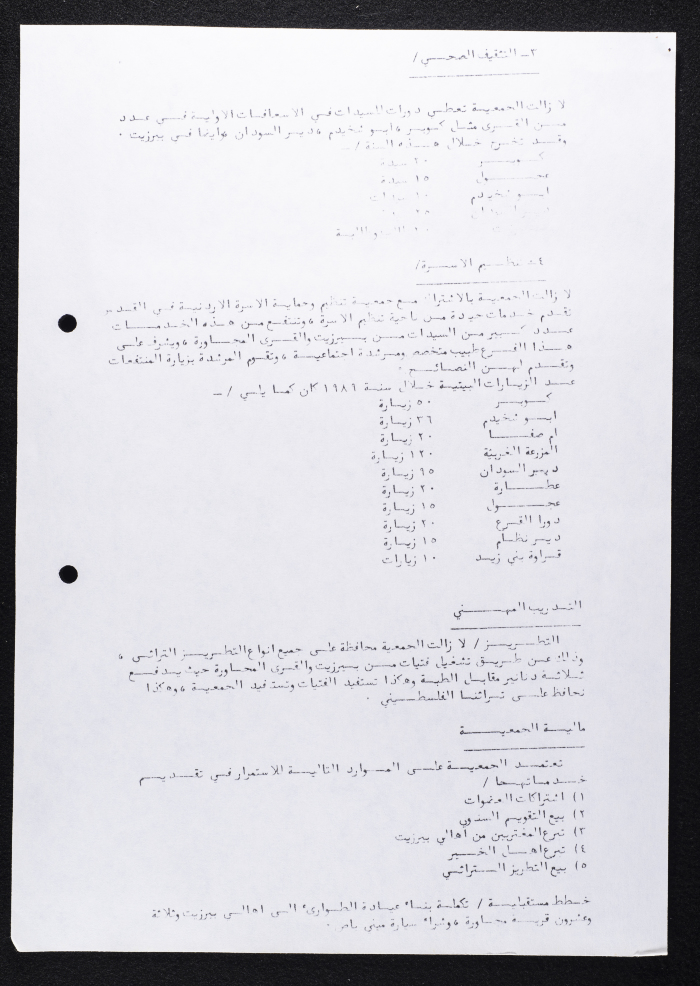 ٣- التثقيف الصحي /
لا زالت الجمعية تعطي دورات للسيدات في الاسعافات الاولية في عدد
من القرى مثل كوبر ، ابو شخيدم ، دير السودان ، وايضا في بيرزيت .
وقد تخرج خلال هذه السنة / -
كوبر ٢٠ سيدة
عجول ١٥ سيدة
ابو شخيدم ١٠ سيدات
٤- تنظيم الاسرة /
لا زالت الجمعية بالاشتراك مع جمعية تنظيم وحماية الاسرة الاردنية في القدس
تقدم خدمات جيدة من ناحية تنظيم الاسرة ، وتنتفع من هذه الخدمات
عدد كبير من السيدات من بيرزيت والقرى المجاورة ، ويشرف على
هذا الفرع طبيب متخصص ومرشدة اجتماعية ، وتقوم المرشدة بزيارة المنتفعات
وتقدم لهن النصائح .
عدد الزيارات البيتية خلال سنة ١٩٨٦ كان كما يلي / -
كوبر ٥٠ زيارة
ابو شخيدم ٣٦ زيارة
ام صفا ٢٠ زيارة
المزرعة الغربية ١٢٠ زيارة
دير السودان ٩٥ زيارة
عطارة ٢٠ زيارة
عجول ١٥ زيارة
دورا القرع ٢٠ زيارة
دير نظام ١٥ زيارة
قراوة بني زيد ١٠ زيارات
التدريب المهني
التطريز / لا زالت الجمعية محافظة على جميع انواع التطريز التراثي ،
وذلك عن طريق تشغيل فتيات من بيرزيت والقرى المجاورة حيث يدفع
ثلاثة دنانير مقابل الطبة وهكذا تستفيد الفتيات وتستفيد الجمعية ، وهكذا
نحافظ على تراثنا الفلسطيني .
مالية الجمعية
تعتمد الجمعية على الموارد التالية للاستمرار في تقديم
خدماتها /
١) اشتراكات العضوات
٢) بيع التقويم السنوي
٣) تبرع المغتربين من أهالي بيرزيت
٤) تبرع اهل الخير
٥) بيع التطريز التراثي
خطط مستقبلية / تكملة بناء عيادة الطوارئ الى اهالي بيرزيت وثلاثة
وعشرون قرية مجاورة ، وشراء سيارة ميني باص .